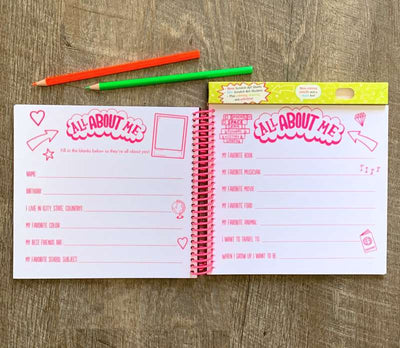 ALL ABOUT ME
Fill in the blanks below so they're all about you!
NAME
BIRTHDAY
I LIVE IN (CITY, STATE, COUNTRY)
MY FAVORITE COLOR
MY BEST FRIENDS ARE
MY FAVORITE SCHOOL SUBJECT
ALL ABOUT ME
MY FAVORITE BOOK
MY FAVORITE MUSICIAN
MY FAVORITE MOVIE
MY FAVORITE FOOD
MY FAVORITE ANIMAL
I WANT TO TRAVEL TO
WHEN I GROW UP I WANT TO BE